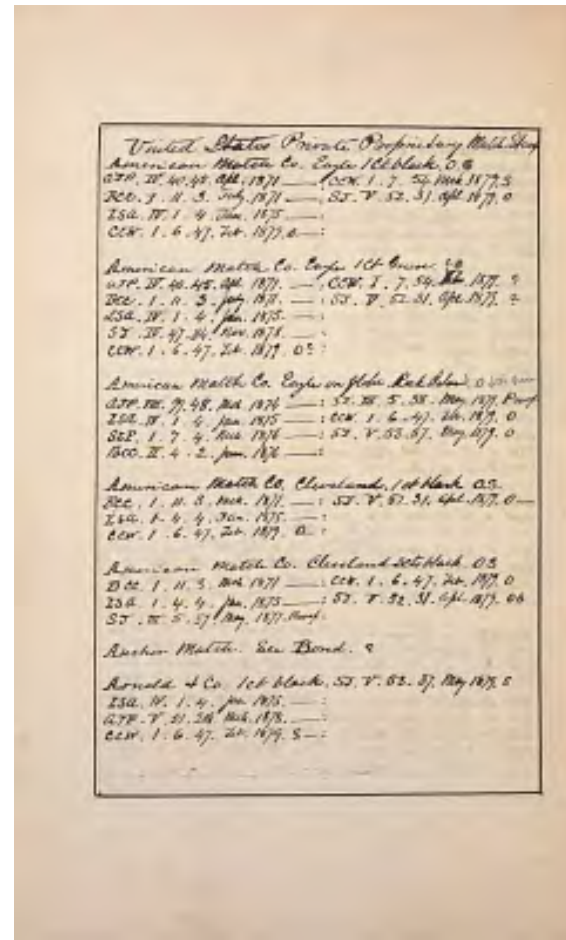 United States Private Proprietary Match Stamp
American Match Co. Eagle 1ct black. O S
AJP. IV. 40. 45. Apl. 1871 —: CCW. 1. 7. 54. Mch. 1879. S
BCC. 1. 11. 3. July. 1871 —: SJ. V. 52. 31. Apl. 1879. O
ISA. IV. 1. 4. Jan. 1875 —:
CCW. 1. 6. 47. Feb. 1879. O —:
American Match Co. Eagle 1ct Green.
AJP. IV. 40. 45. Apl. 1871. —: CCW. I. 7. 54. 1879.
BCC. 1. 11. 3. July. 1871. —: SJ. V. 52. 31. Apl. 1879.
ISA. IV. 1. 4. Jan. 1875 —:
SJ. IV. 47. 84. Nov. 1878. —:
CCW. 1. 6. 47. Feb. 1879. O
American Match Co. Eagle on globe
AJP. 48. Mch. 1874 —: SJ. III. 5. 38. May. 1877. Proof
ISA. IV. 1. 4. Jan. 1875 —: CCW. 1. 6. 47. Feb. 1879. O
1. 7. 4. Mch. 1876 —: SJ. V. 53. 57. May. 1879. O
BCC. II. 4. 2. Jan. 1876 —:
American Match Co. Cleveland. 1ct black O S
BCC. 1. 11. 3. 1871. —: SJ. V. 52. 31. Apl. 1879. O —
ISA. 1. 4. 4. Jan. 1875. —:
CCW. 1. 6. 47. Feb. 1879. O —:
American Match Co. Cleveland black O S
BCC. 1. 11. 3. 1871 —: CCW. 1. 6. 47. Feb. 1879. O
ISA. 1. 4. 4. Jan. 1875 —: SJ. V. 52. 31. Apl. 1879.
SJ. III. 5. 57. May. 1877. Proof.
Anchor Match. See Bond.
Arnold & Co. 1ct black. SJ. V. 53. 57. May 1879. S
ISA. IV. 1. 4. Jan. 1875. —:
AJP. V. 21. Mch. 1878. —:
CCW. 1. 6. 47. Feb. 1879. S —: